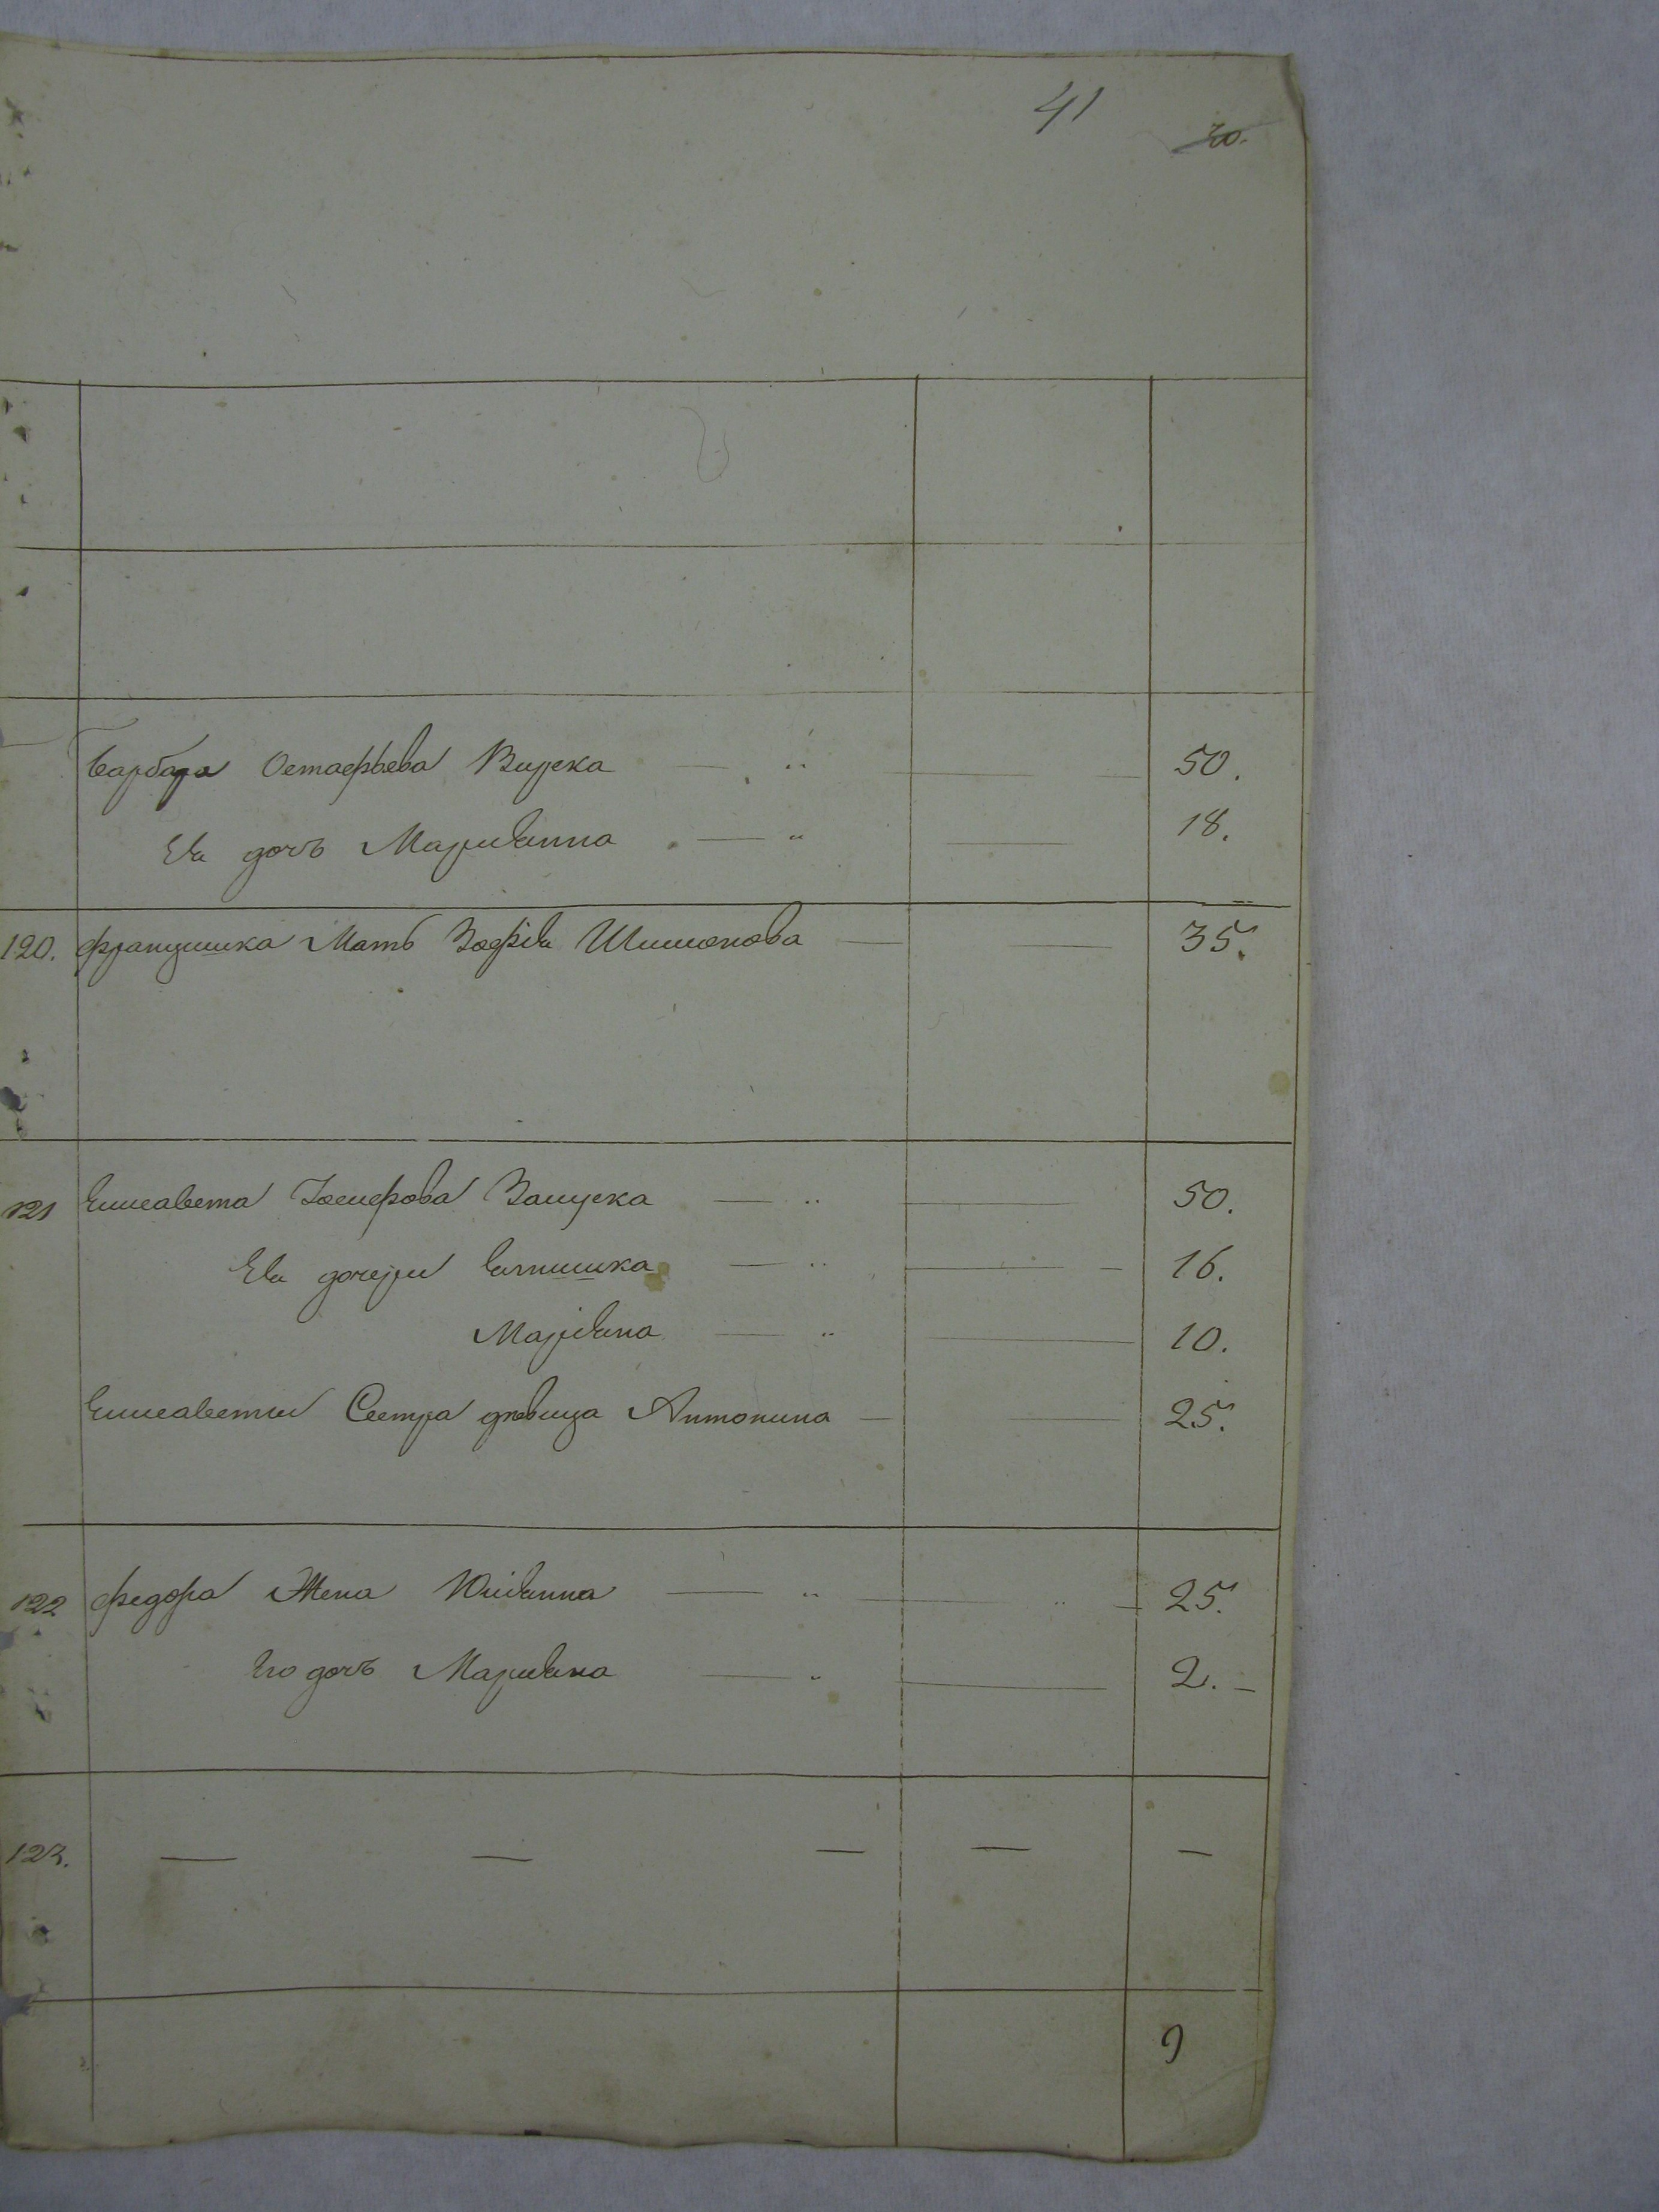 41
30.
Барбара Остафьева Вдуска 50.
Ея дочь Марианна 18.
120. Францишка Мать Зофія Шимонова 35.
121 Елисавета Іосифова 50.
Ея дочери 16.
Маріяна 10.
Елисаветы Сестра дѣвица Антонина 25.
122 Федора Жена Юліянна 25.
Его дочь Марияна 2.
123. — — — — —
9